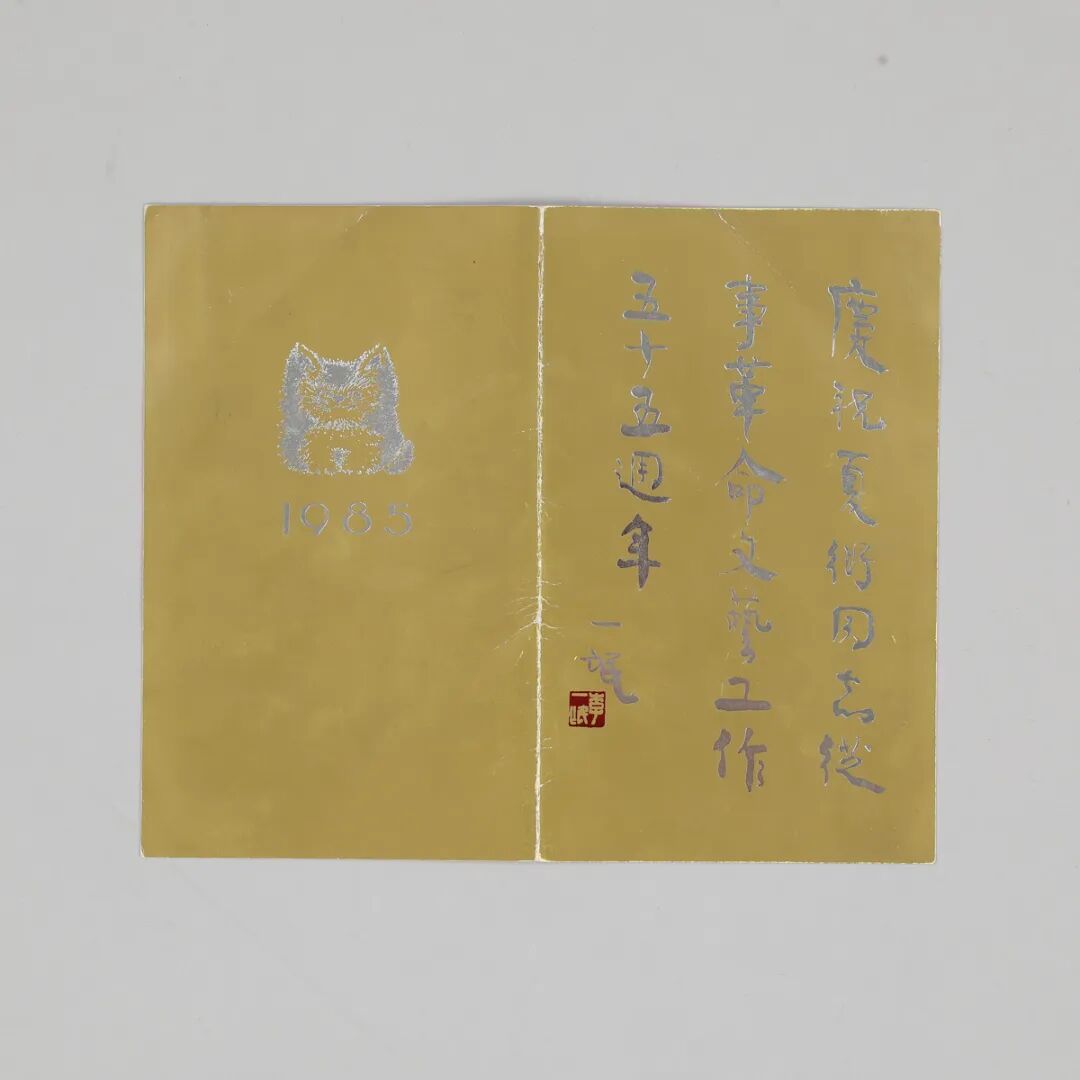 慶祝夏衍同志從
事革命文藝工作
五十五週年
一氓
李一氓
1985